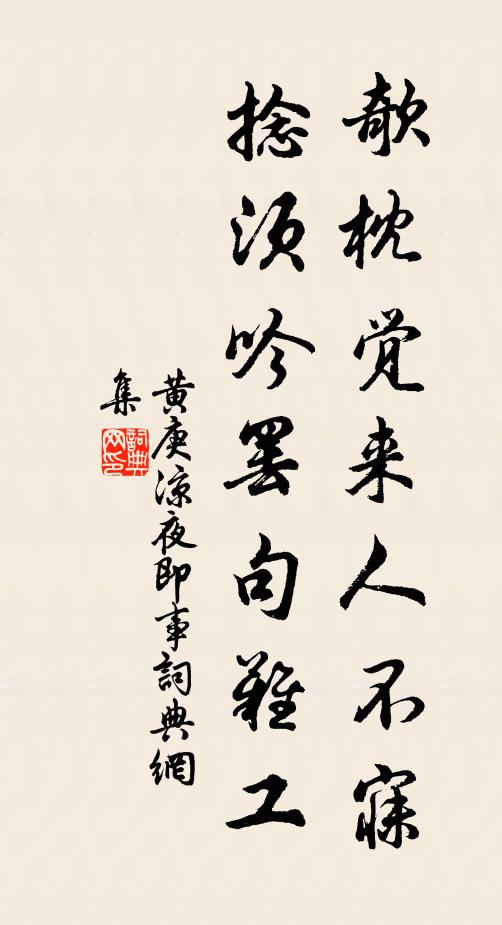 欹枕觉来人不寐
捻须吟罢句难工
黄庚凉夜即事詞典網
集
詞典网印